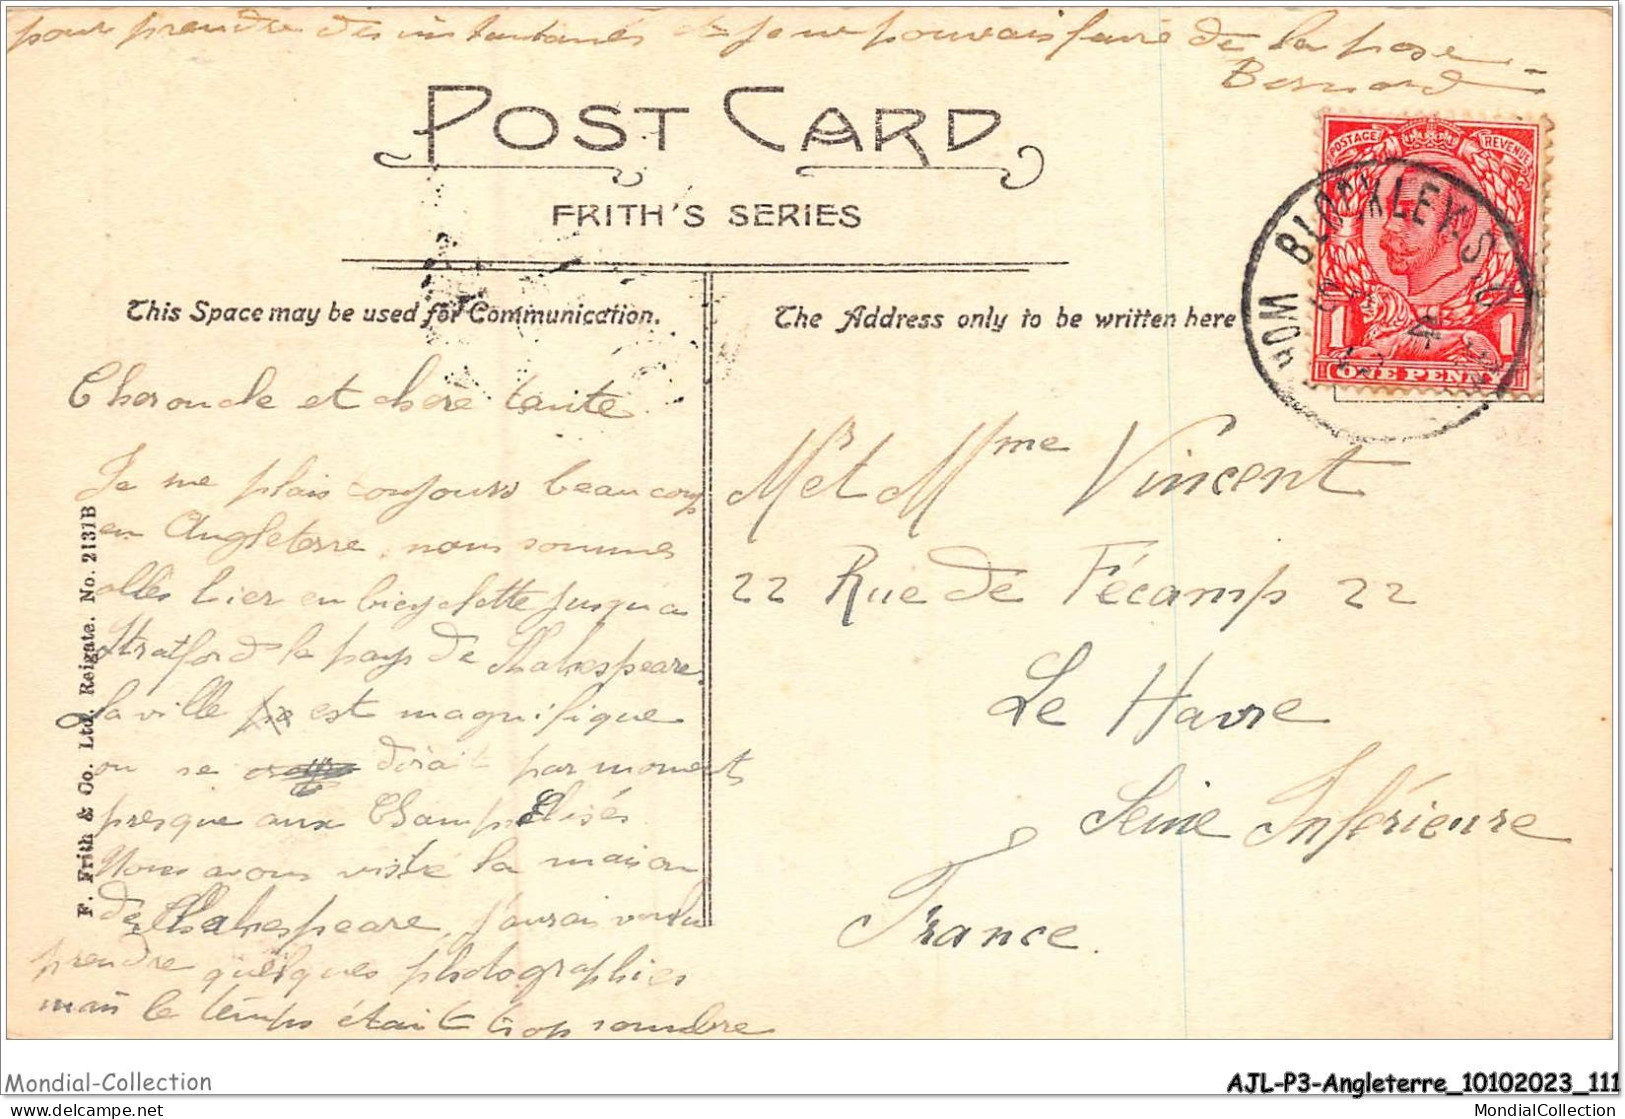 pour prendre des instantanés je ne pouvais faire de la pose
Bernard
POST CARD
FRITH'S SERIES
This Space may be used for Communication.
The Address only to be written here
POSTAGE REVENUE
1 1
ONE PENNY
BLOCKLEY. S.O
WOR
Cher oncle et chère tante
Je me plais toujours beaucoup
en Angleterre, nous sommes
allés hier en bicyclette jusqu'a
Stratford le pays de Shakespeare.
la ville est magnifique
on se dirait par moments
presque aux Champs Elisés
Nous avons visité la maison
de Shakespeare, j'aurais voulu
prendre quelques photographies
mais le temps était trop sombre
Mr et Mme Vincent
22 Rue de Fécamp 22
Le Havre
Seine Inférieure
France.
F. Frith & Co. Ltd. Reigate. No. 2137B
Mondial-Collection
AJL-P3-Angleterre_10102023_111
delcampe.net
MondialCollection